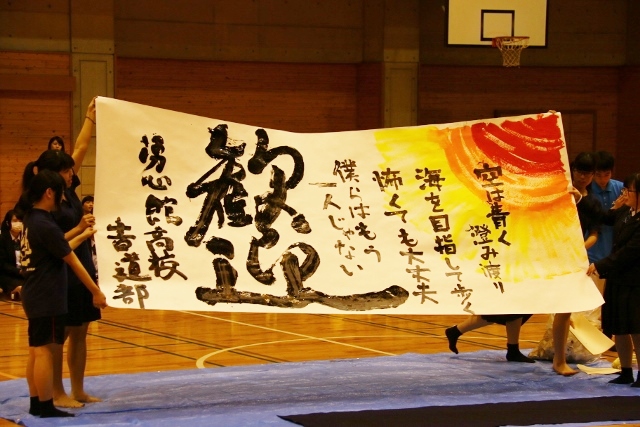 空は青く
澄み渡り
海を目指して歩く
怖くても大丈夫
僕らはもう
一人じゃない
歓迎
勇心館高校
書道部